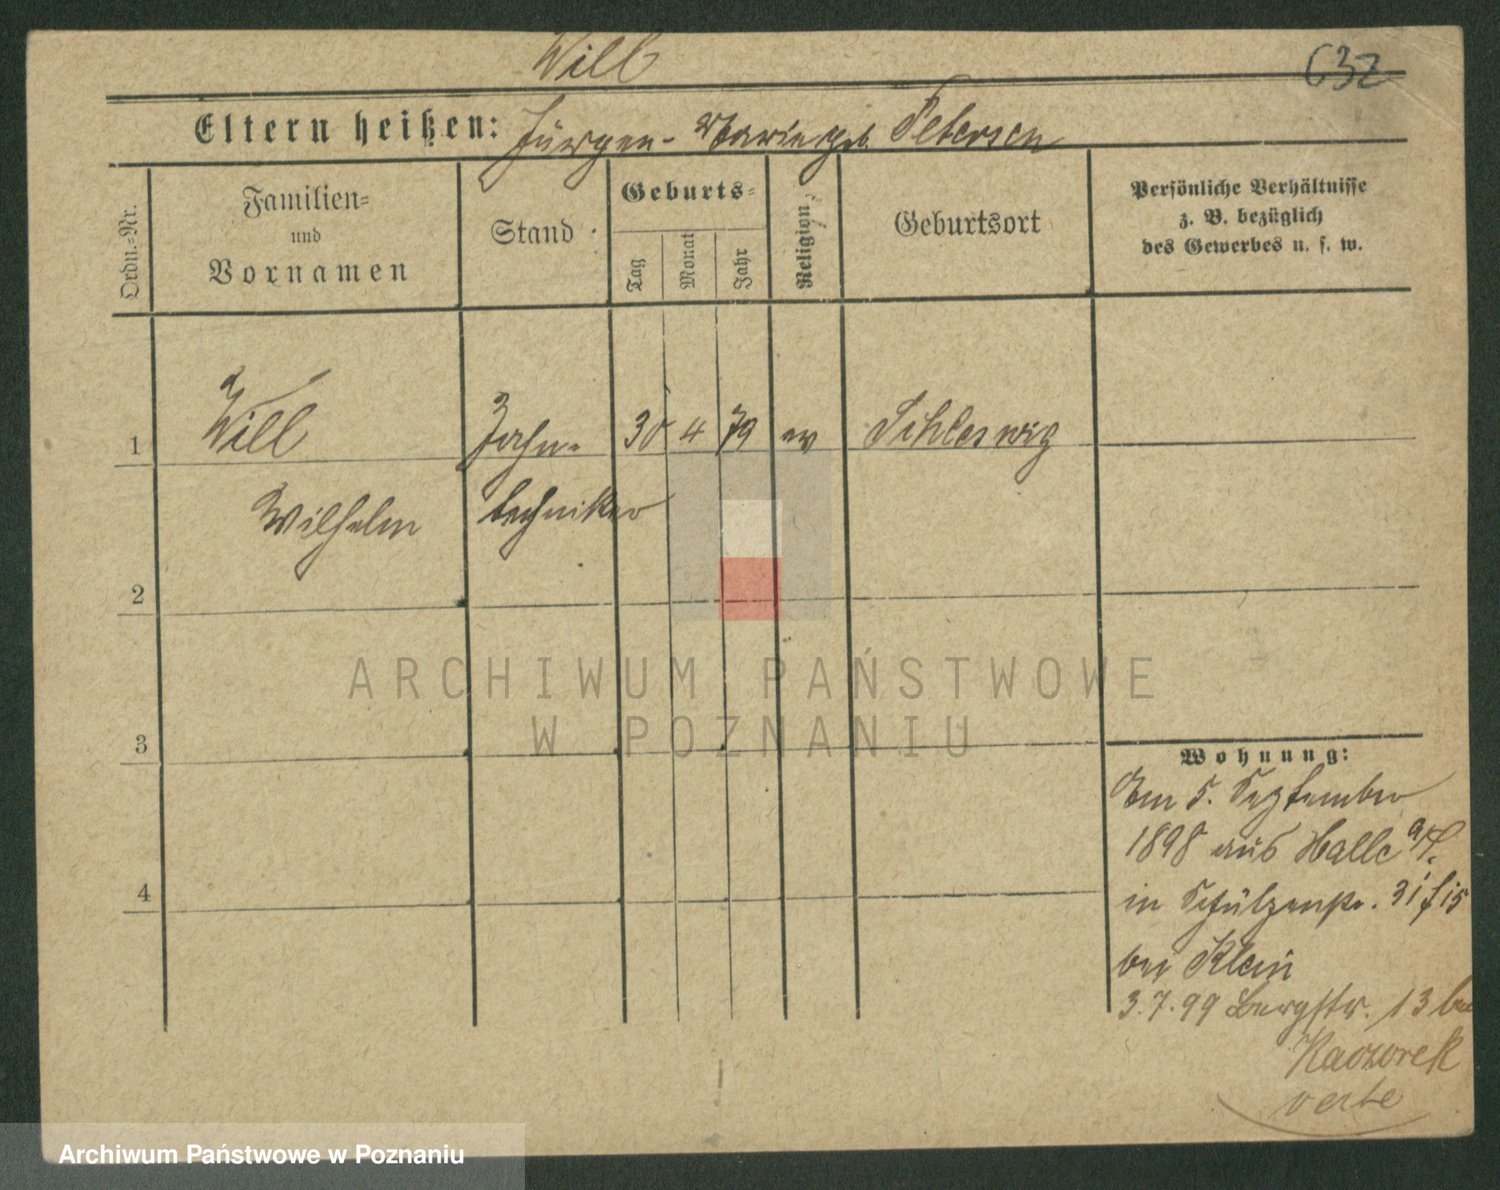 Will
632
Eltern heißen: Jürgen - Marie geb. Petersen
Ordn.=Nr.
Familien=
und
Vornamen
Stand
Geburts=
Tag
Monat
Jahr
Religion
Geburtsort
Persönliche Verhältnisse
z. B. bezüglich
des Gewerbes u. s. w.
1 Will Zahn- 30 4 79 ev Schleswig
Wilhelm techniker
2
3
4
Wohnung:
Am 5. September
1898 aus Halle a/S.
in Schützenstr. 31
bei Klein
3.7.99 Bergstr. 13 bei
Kaczorek
verte
ARCHIWUM PAŃSTWOWE
W POZNANIU
Archiwum Państwowe w Poznaniu